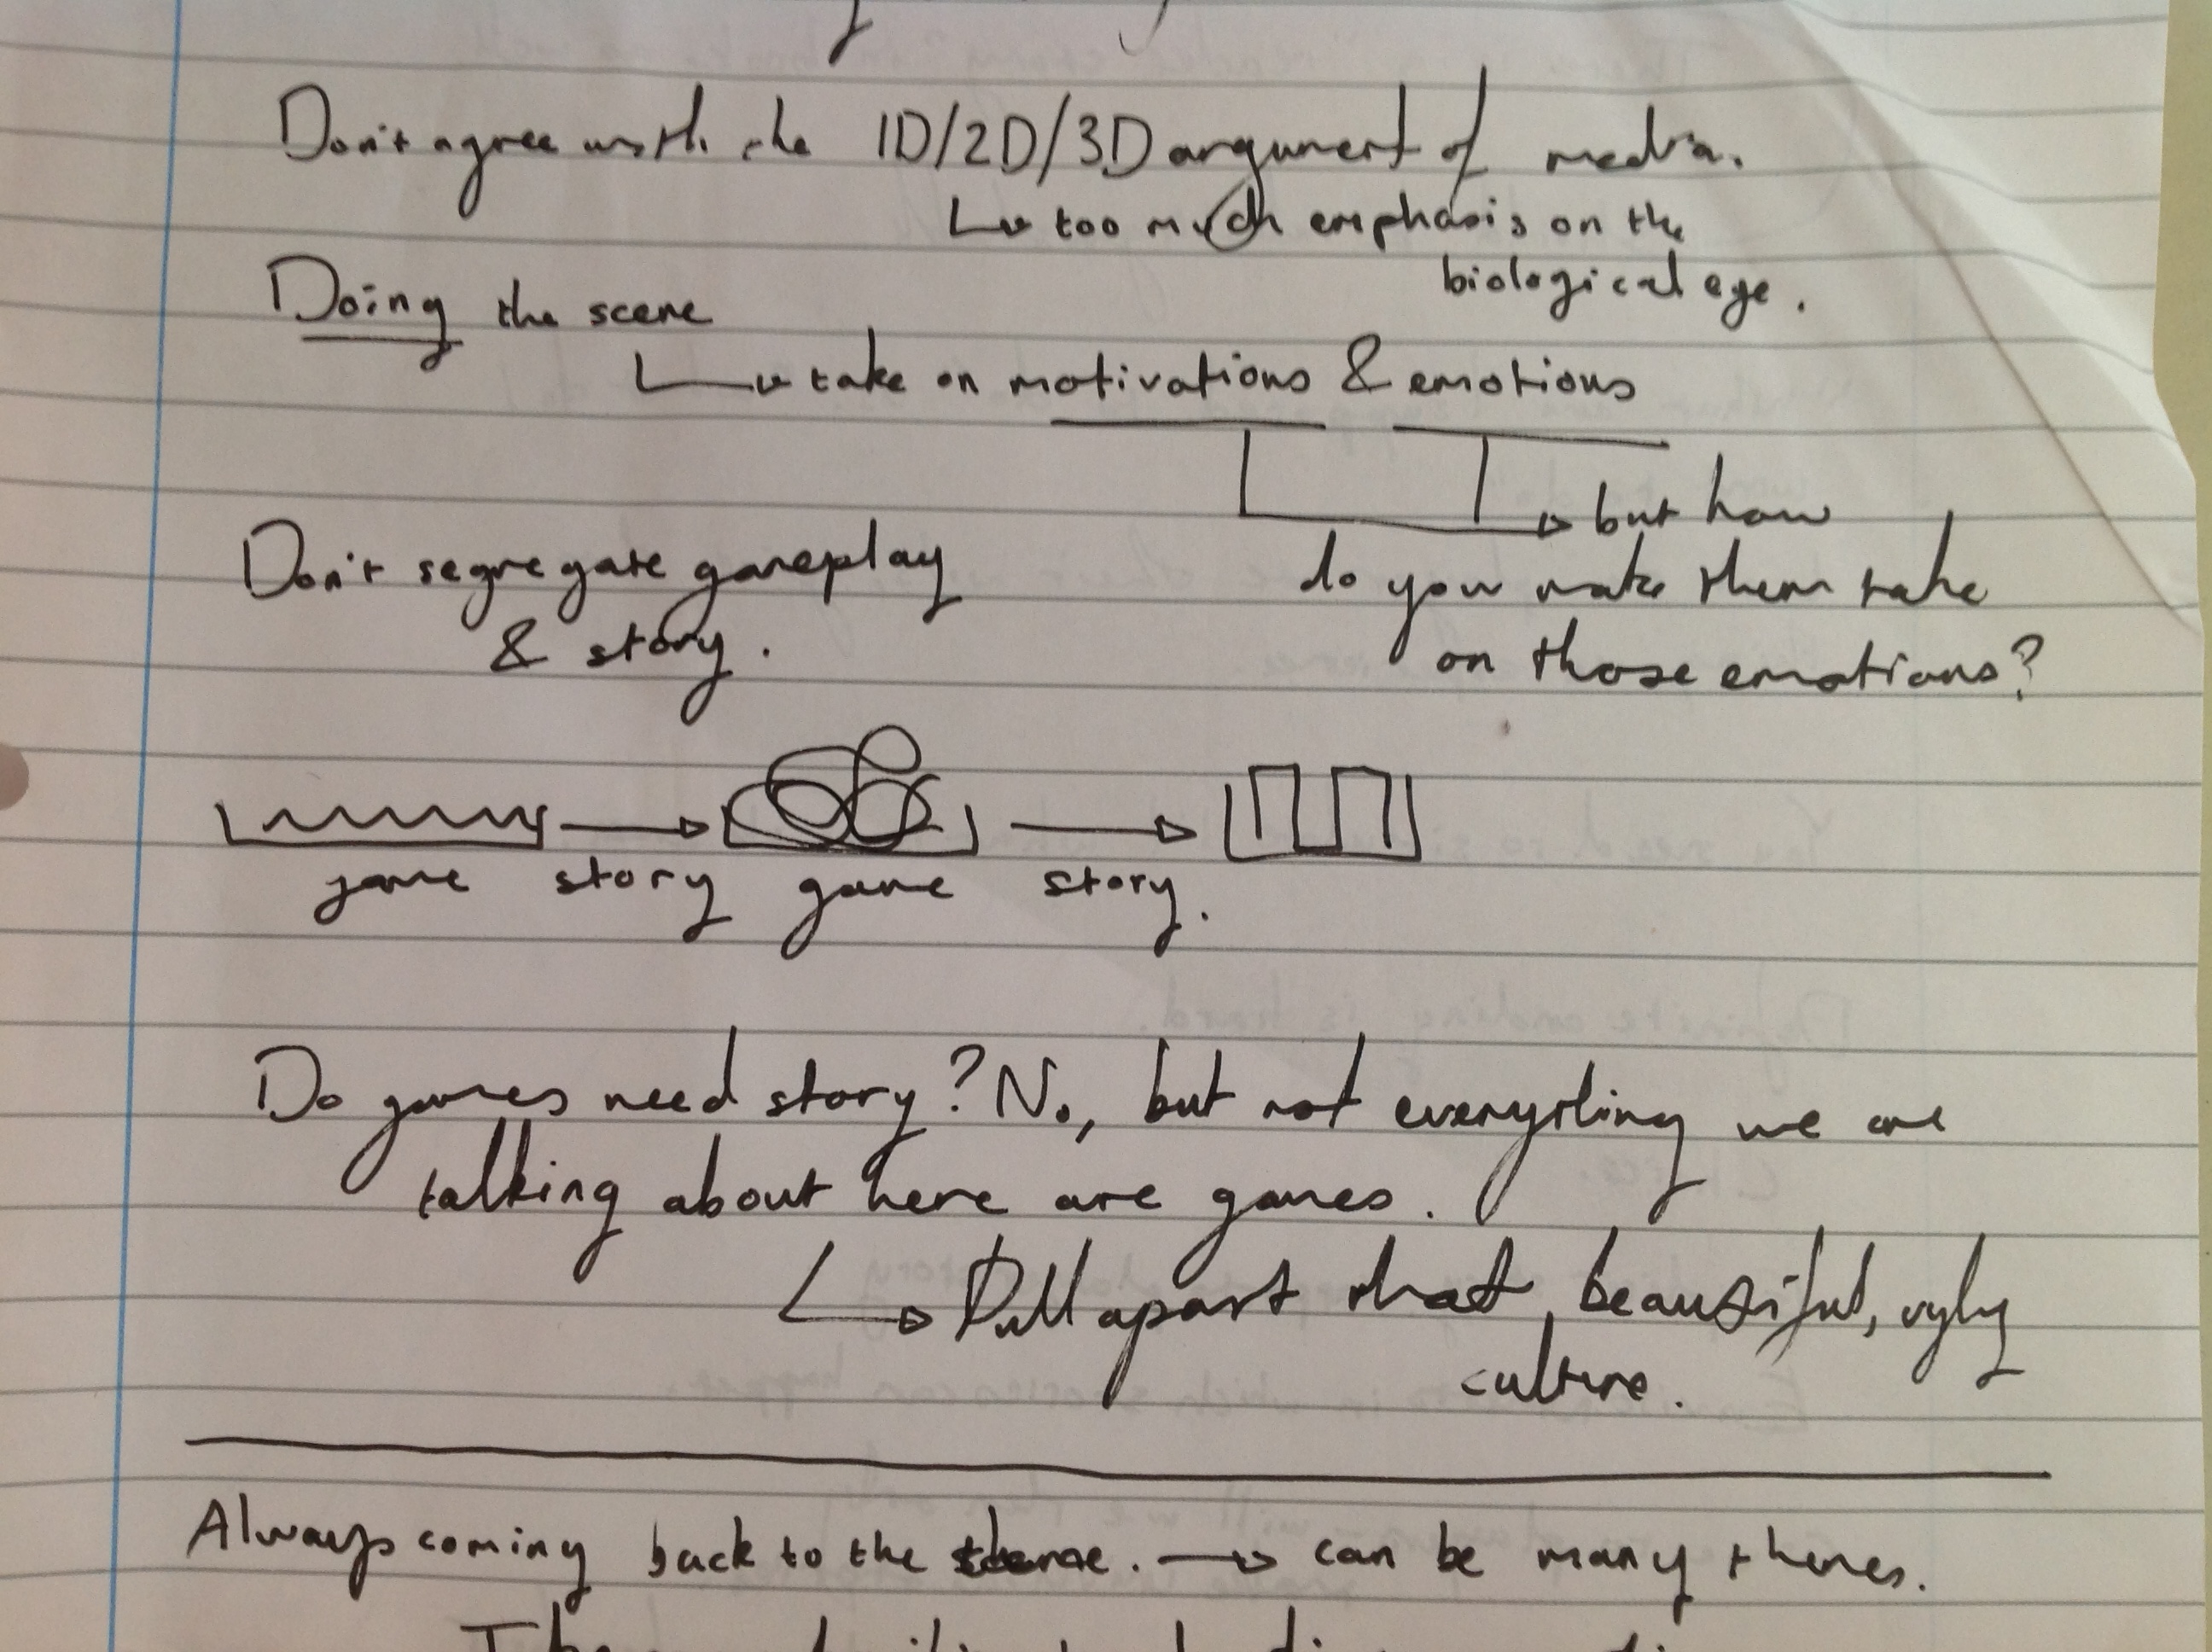 Don't agree with the 1D/2D/3D argument of media.
too much emphasis on the
biological eye.
Doing the scene
take on motivations & emotions
but how
do you make them take
on those emotions?
Don't segregate gameplay
& story.
game story game story.
Do games need story? No, but not everything we are
talking about here are games.
Pull apart that, beautiful, ugly
culture.
Always coming back to the theme. can be many themes.